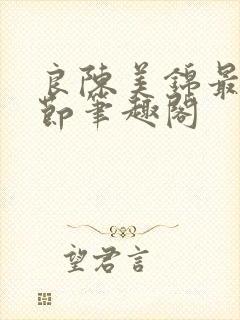 良陈美锦最
节笔趣阁
望君言